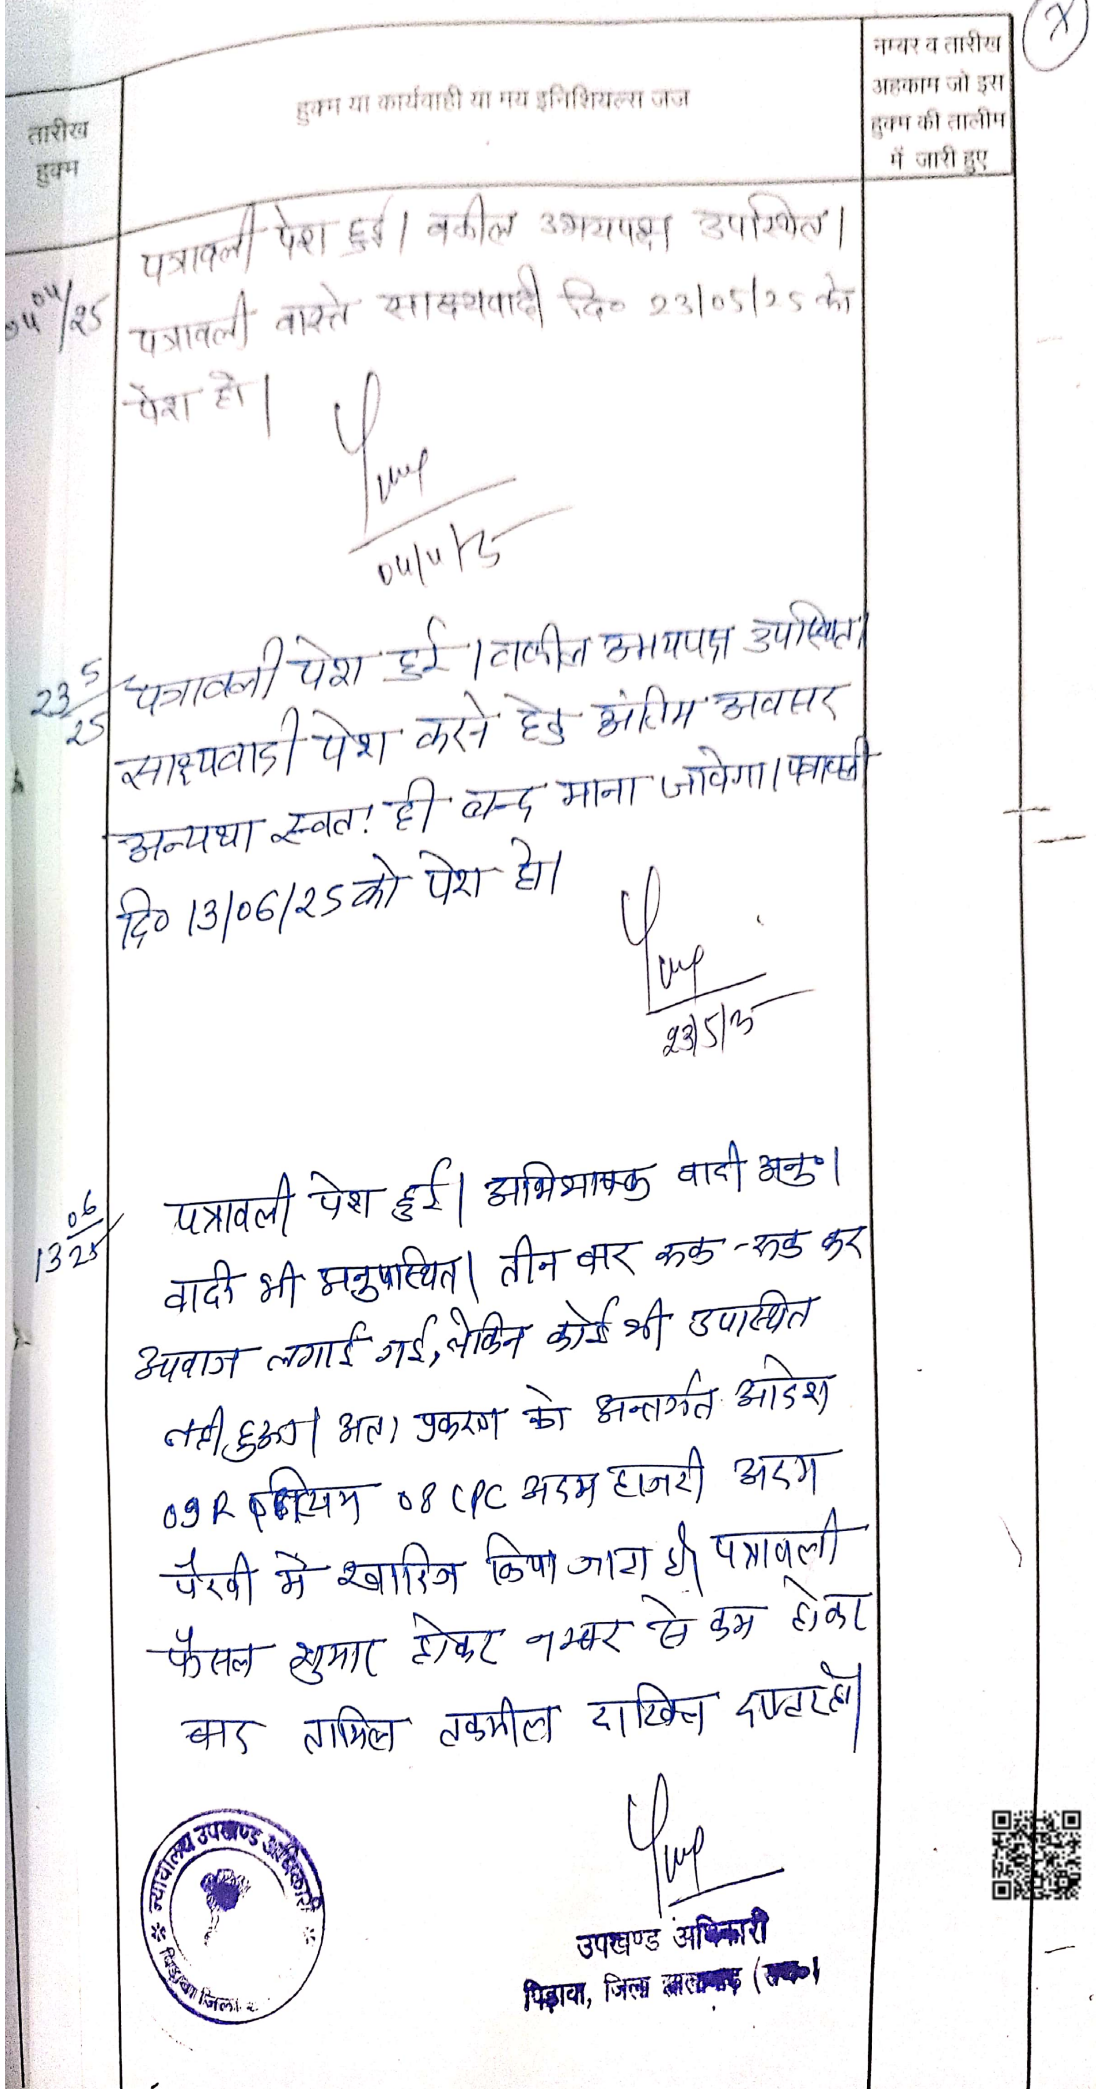 नम्बर व तारीख
अहकाम जो इस
हुक्म की तालीम
में जारी हुए
हुक्म या कार्यवाही या मय इनिशियल्स जज
तारीख
हुक्म
04/04/25
पत्रावली पेश हुई। वकील उभयपक्ष उपस्थित।
पत्रावली वास्ते साक्ष्यवादी दि० 23/05/25 को
पेश हो।
04/4/25
23/5/25
पत्रावली पेश हुई। वकील उभयपक्ष उपस्थित।
साक्ष्यवादी पेश करने हेतु अंतिम अवसर
अन्यथा स्वतः ही बन्द माना जावेगा। पत्रावली
दि० 13/06/25 को पेश हो।
23/5/25
13/06/25
पत्रावली पेश हुई। अभिभाषक वादी अनु०।
वादी भी अनुपस्थित। तीन बार रुक-रुक कर
आवाज लगाई गई, लेकिन कोई भी उपस्थित
नहीं हुआ। अतः प्रकरण को अन्तर्गत आदेश
09 R नियम 08 CPC अदम हाजरी अदम
पैरवी में खारिज किया जाता है। पत्रावली
फैसल शुमार होकर नम्बर से कम होकर
बाद तामिल तकमील दाखिल दफ्तर हो।
न्यायालय उपखण्ड अधिकारी
पिड़ावा जिला
उपखण्ड अधिकारी
पिड़ावा, जिला झालावाड़ (राज०)